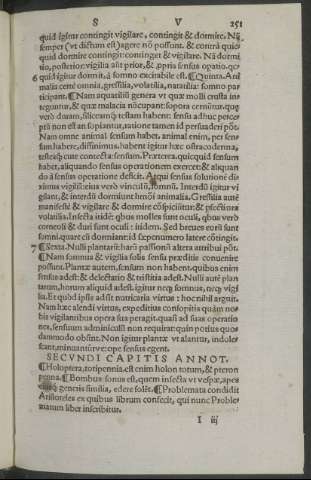 S V 251
quid igitur contingit vigilare, contingit & dormire. Nā
semper (vt dictum est) agere nō possunt. & contrà quic
quid dormire contingit: contingit & vigilare. Nā dormi
tio, posterior: vigilia aūt prior, & ꝓpria sensus opatio. qc
6 quid igitur dormit, à somno excitabile est. ¶Quinta. Ani
malia certè omnia, gressilia, volatilia, natatilia: somno par
ticipant. ¶Nam aquatiliū genera vt quæ molli crusta in
teguntur, & quæ malacia nōcupant: sopora cernūtur. quę
verò duram, siliceamq́ testam habent: sensu adhuc perce-
ptā non est an sopiantur, ratione tamen id persuaderi pōt.
Nam omne animal sensum habet. animal enim, per sen-
sum habere, diffinimus. habent igitur hæc ostracoderma,
testeisq́ cute contecta: sensum. Præterea. quicquid sensum
habet, aliquando sensus operationem exercet: & aliquan
do à sensus operatione deficit. Atqui sensus solutionē di-
ximus vigiliā: eius verò vinculū, somnū. Interdū igitur vi
gilant, & interdū dormiunt hmōi animalia. Gressilia autē
manifestè & vigilare & dormire cōspiciūtur: & plectiora
volatilia. Insecta itidē: qbus molles sunt oculi, qbus verò
cornei & duri sunt oculi: itidem. Sed breues eorū sunt
somni. quare eū dormiant: id sæpenumero latere cōtingit.
7 ¶Sexta. Nulli plantarū harū passionū altera attribui pōt.
¶Nam somnus & vigilia solis sensu præditis conuenire
possunt. Plantæ autem, sensum non habent. quibus enim
sensus adest: & delectatio & tristitia adest. Nulli autē plan
tarum, horum aliquid adest. igitur neq; somnus, neq; vigi
lia. Et quòd ipsis adsit nutricatiua virtus: hoc nihil arguit.
Nam hæc alendi virtus, expeditius consopitis quàm no-
bis vigilantibus opera sua peragit. quasi ad suas operatio
nes, sensuum adminiculū non requirat: quin potius quo-
dammodo obsint. Non igitur plantæ vt alantur, indoles-
scant, minuantúrve: ope sensus egent.
SECVNDI CAPITIS ANNOT.
¶Holoptera, totipennia. est enim holon totum, & pteron
penna. ¶Bombus: sonus est, quem insecta vt vespæ, apes
generis similia, edere solēt. ¶Problemata condidit
Aristoteles ex quibus librum confecit, qui nunc Proble-
matum liber inscribitur.
I iij